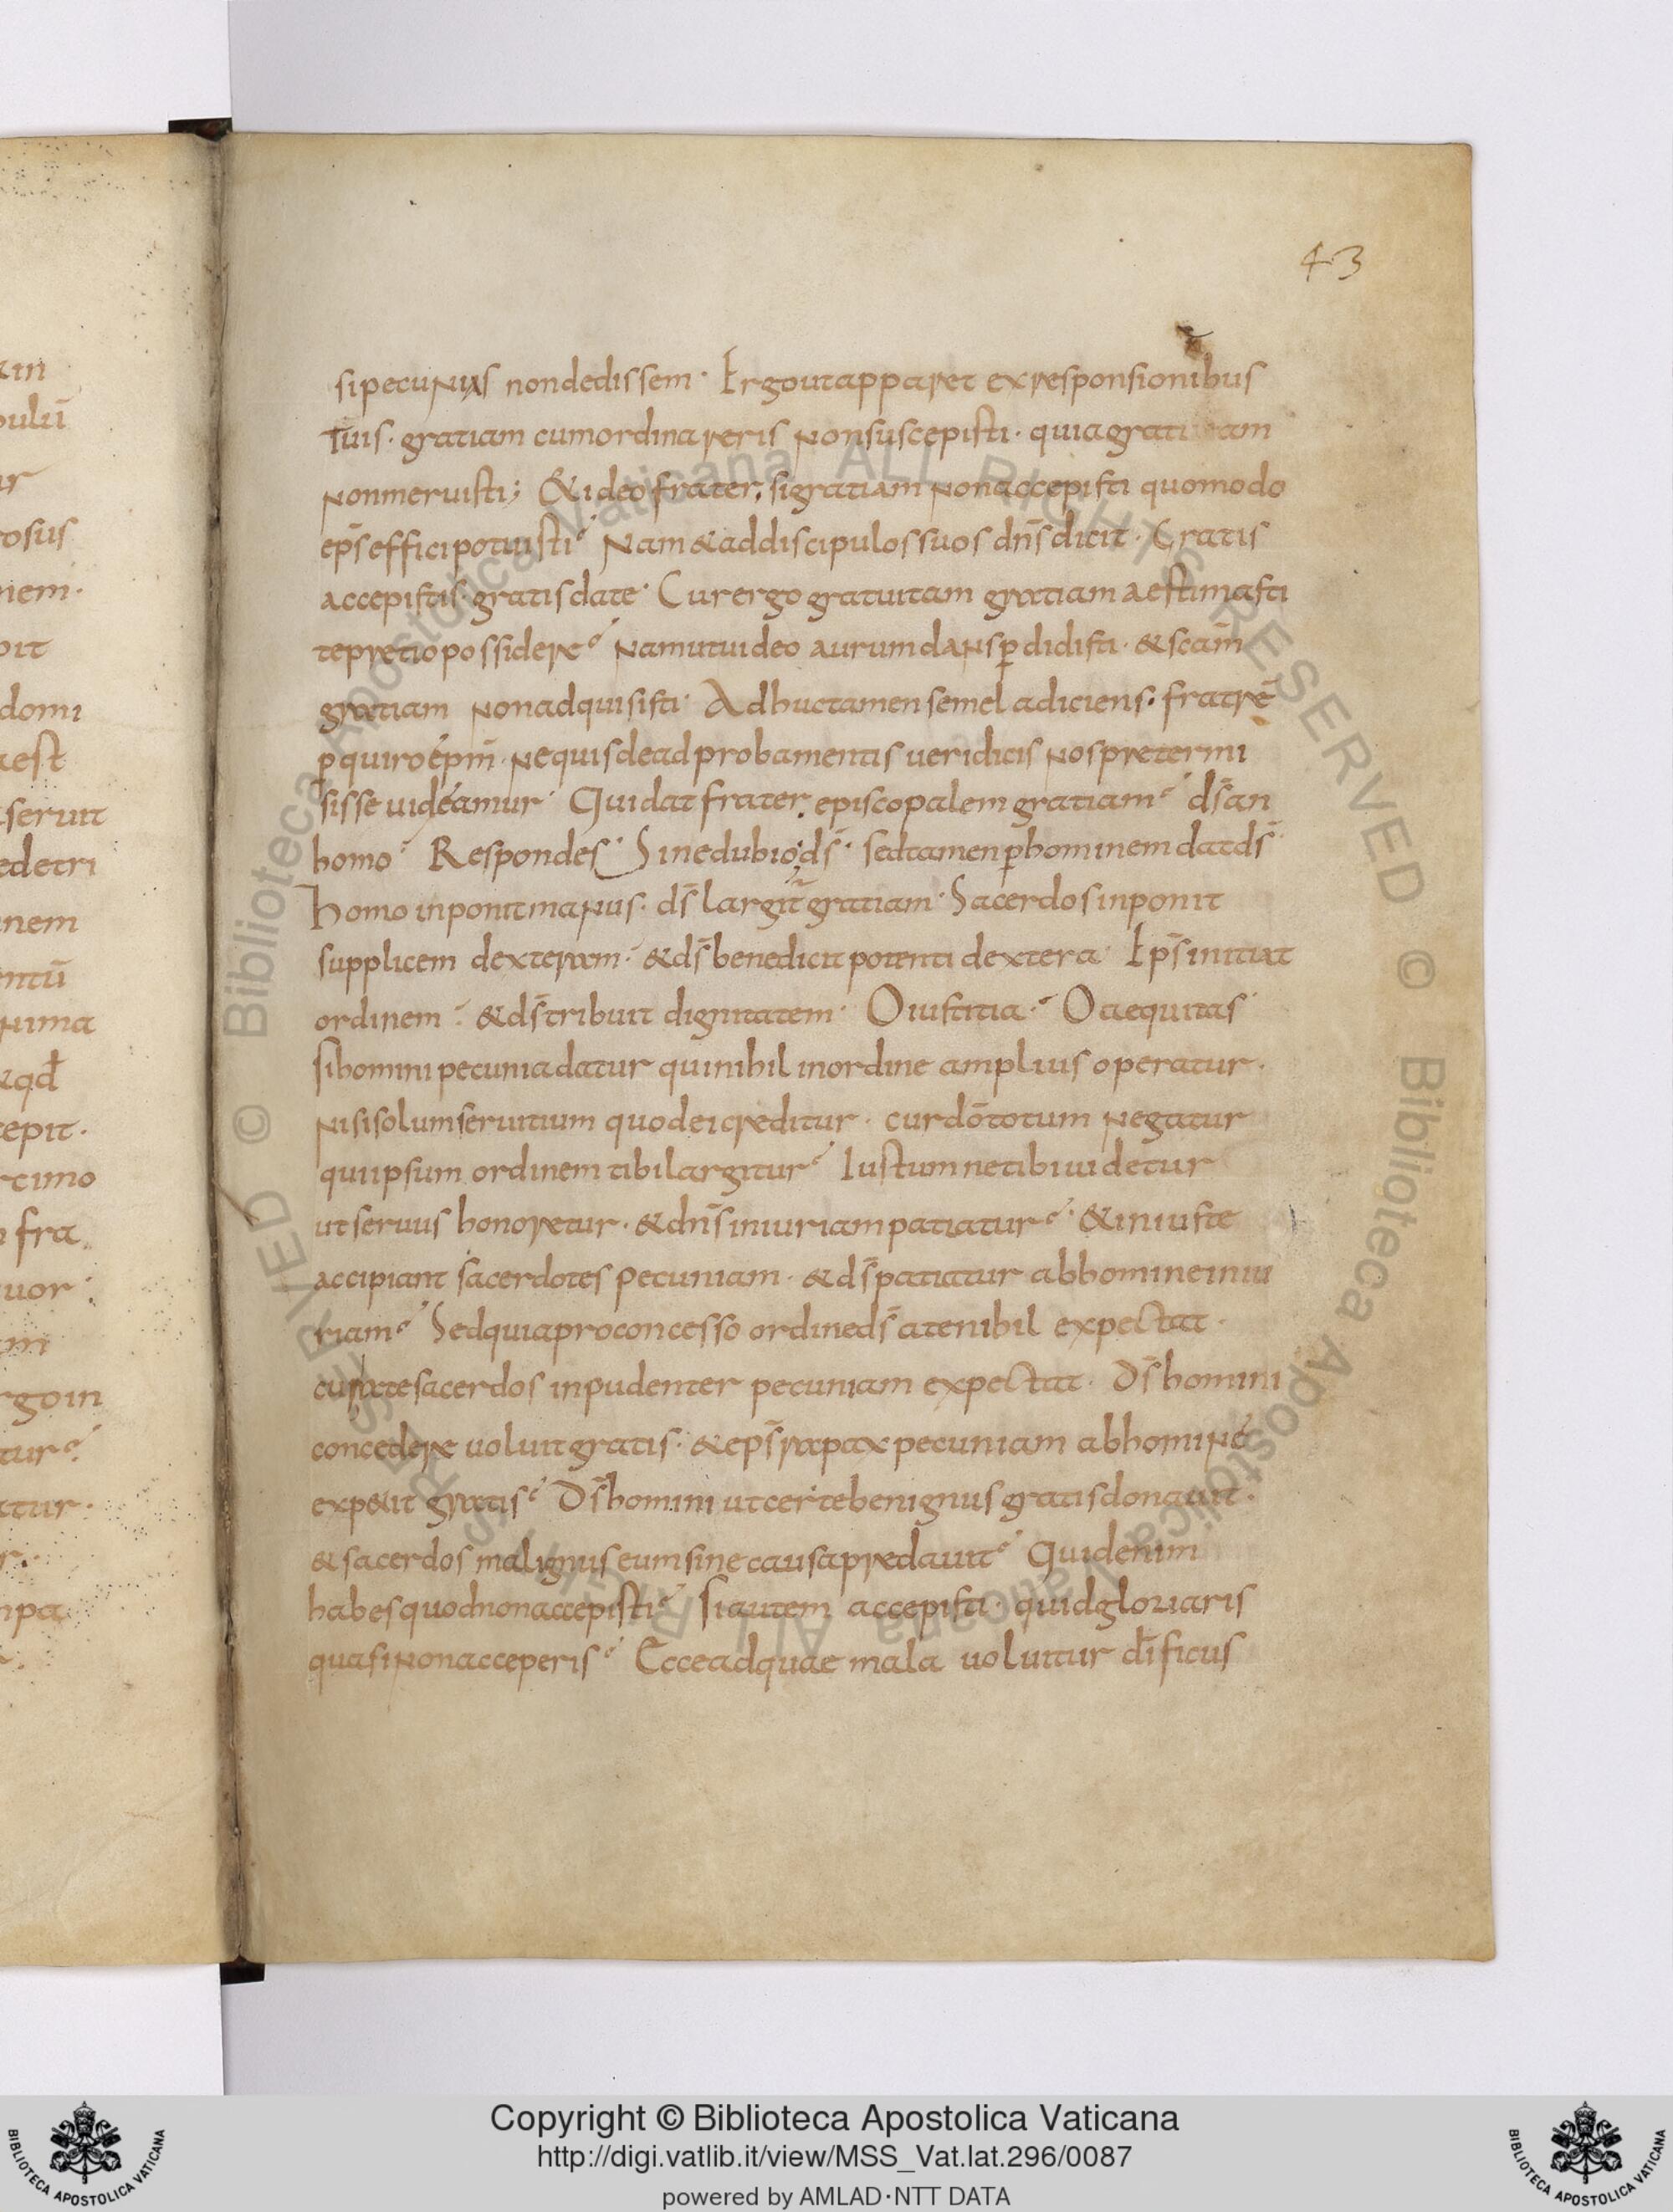 43
si pecunias non dedissem· Ergo ut apparet ex responsionibus
tuis· gratiam cum ordinareris non suscepisti· quia gratuitam
non meruisti; & ideo frater, si gratiam non accepisti quomodo
ep̄s effici potuisti? Nam & ad discipulos suos dn̄s dicit· Gratis
accepistis· gratis date· Cur ergo gratuitam gratiam aestimasti
te pretio possidere? Nam ut uideo aurum dans ꝑdidisti· & scām
gratiam non adquisisti· Adhuc tamen semel adiciens· fratrē
ꝑquiro ep̄m· ne quis de adprobamentis ueridicis nos pretermi
sisse uideamur· Qui dat frater, episcopalem gratiam? ds̄ an
homo? Respondes· Sine dubio; ds̄· sed tamen ꝑ hominem dat ds̄·
Homo inponit manus· ds̄ largit̄ gratiam· Sacerdos inponit
supplicem dexteram· & ds̄ benedicit potenti dextera· Ep̄s initiat
ordinem· & ds̄ tribuit dignitatem· O iustitia? O aequitas·
si homini pecunia datur qui nihil in ordine amplius operatur·
nisi solum seruitium quod ei creditur· cur dō totum negatur
qui ipsum ordinem tibi largitur? Iustum ne tibi uidetur
ut seruus honoretur· & dn̄s iniuriam patiatur? & iniuste
accipiant sacerdotes pecuniam· & ds̄ patiatur ab homine iniu
riam? Sed quia pro concesso ordine ds̄ a te nihil expectat·
cur a te sacerdos inpudenter pecuniam expectat· Ds̄ homini
concedere uoluit gratis· & ep̄s rapax pecuniam ab homine
exp&it gratis? Ds̄ homini ut certe benignus gratis donauit·
& sacerdos malignus eum sine causa predauit? Quid enim
habes quod non accepisti? Si autem accepisti· quid gloriaris
quasi non acceperis? Ecce ad quae mala uoluitur dīficus
Copyright © Biblioteca Apostolica Vaticana
http://digi.vatlib.it/view/MSS_Vat.lat.296/0087
powered by AMLAD·NTT DATA
BIBLIOTECA APOSTOLICA VATICANA
BIBLIOTECA APOSTOLICA VATICANA
© Biblioteca Apostolica Vaticana ALL RIGHTS RESERVED © Biblioteca Apostolica Vaticana ALL RIGHTS RESERVED